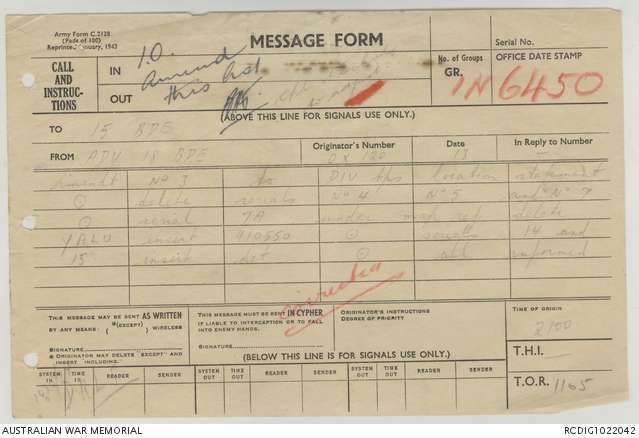 Army Form C.2128
(Pads of 100)
Reprinted January, 1943
MESSAGE FORM
Serial No.
CALL
AND
INSTRUC-
TIONS
IN
OUT
I.O.
Amend
this list
No. of Groups
GR.
OFFICE DATE STAMP
IN 6450
(ABOVE THIS LINE FOR SIGNALS USE ONLY.)
TO 15 BDE
FROM ADV 18 BDE
Originator's Number
OX 120
Date
13
In Reply to Number
—
Amendt No 3 to DIV tps location statement
⊙ delete serials No 4 No 5 and No 7
⊙ serial 7A under road ref delete
YALU insert 410550 ⊙ serials 14 and
15 insert det ⊙ all informed
THIS MESSAGE MAY BE SENT AS WRITTEN
BY ANY MEANS (*(EXCEPT) WIRELESS
SIGNATURE
* ORIGINATOR MAY DELETE EXCEPT AND
INSERT INCLUDING.
THIS MESSAGE MUST BE SENT IN CYPHER
IF LIABLE TO INTERCEPTION OR TO FALL
INTO ENEMY HANDS.
SIGNATURE
ORIGINATOR'S INSTRUCTIONS
DEGREE OF PRIORITY
TIME OF ORIGIN
2100
(BELOW THIS LINE IS FOR SIGNALS USE ONLY.)
T.H.I.
SYSTEM IN TIME IN READER SENDER SYSTEM OUT TIME OUT READER SENDER SYSTEM OUT TIME OUT READER SENDER
T.O.R. 1105
AUSTRALIAN WAR MEMORIAL
RCDIG1022042